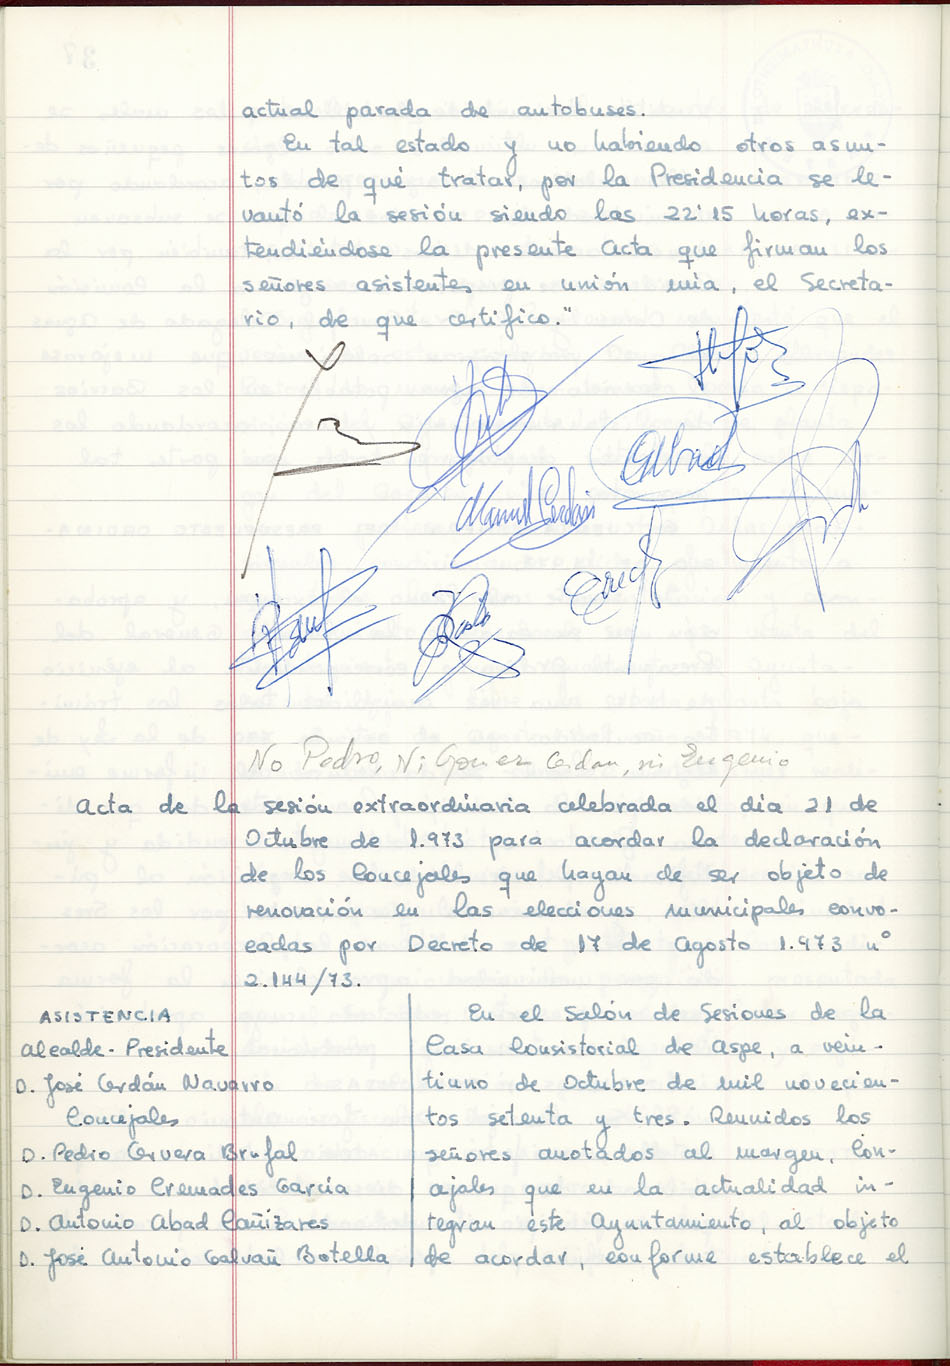 actual parada de autobuses.
En tal estado y no habiendo otros asun-
tos de qué tratar, por la Presidencia se le-
vantó la sesión siendo las 22'15 horas, ex-
tendiéndose la presente Acta que firman los
señores asistentes en unión mia, el Secreta-
rio, de que certifico."
Abad
Manuel Cerdán
No Pedro, Ni Gomez Cerdan, ni Eugenio
Acta de la sesión extraordinaria celebrada el dia 21 de
Octubre de 1.973 para acordar la declaración
de los Concejales que hayan de ser objeto de
renovación en las elecciones municipales convo-
cadas por Decreto de 17 de Agosto 1.973 nº
2.144/73.
ASISTENCIA
Alcalde-Presidente
D. José Cerdán Navarro
Concejales
D. Pedro Cervera Brufal
D. Eugenio Cremades García
D. Antonio Abad Cañizares
D. José Antonio Galvañ Botella
En el Salón de Sesiones de la
Casa Consistorial de Aspe, a vein-
tiuno de Octubre de mil novecien-
tos setenta y tres. Reunidos los
señores anotados al margen, Con-
cejales que en la actualidad in-
tegran éste Ayuntamiento, al objeto
de acordar, conforme establece el